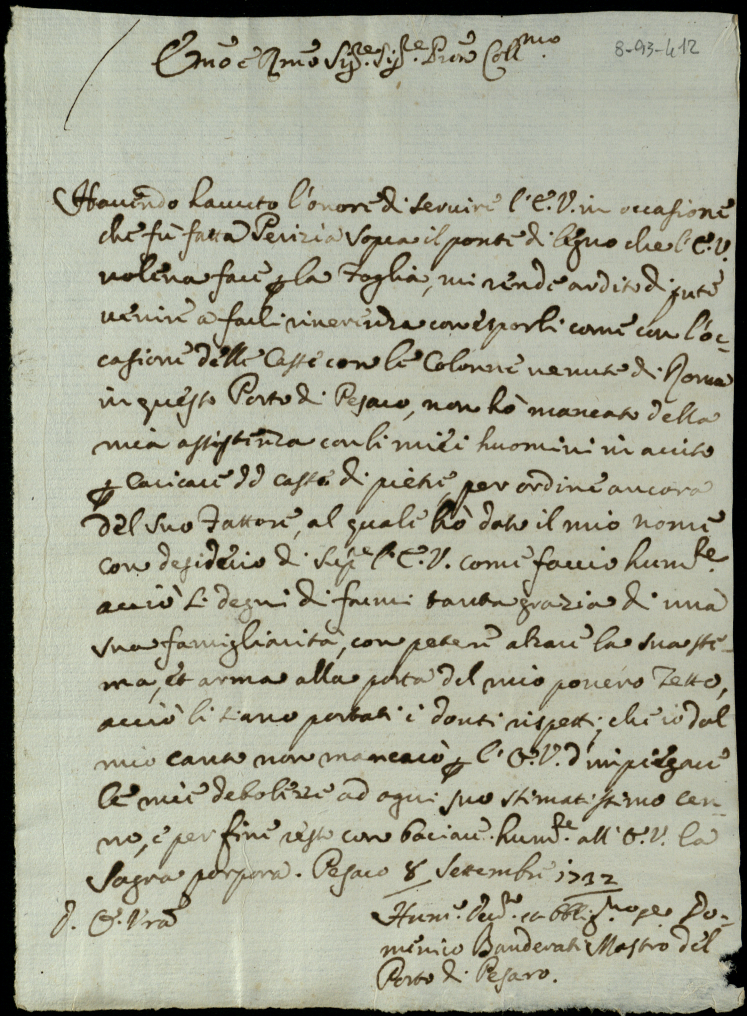 Emõ e Rmõ Sig.re Sig.re Prõn Coll.mo
8-93-412
Havendo havuto l'onore di servire l'E.V. in occasione
che fù fatta Perizia sopra il ponte di legno che l'E.V.
voleva fare p la Foglia, mi rende ardito di
venire a farli riverenza con esporli come con l'oc-
casione delle Casse con le Colonne venute di Roma
in questo Porto di Pesaro, non hò mancato della
mia assistenza con li miei huomini in aiuto
p caricare dd casse di pietre, per ordine ancora
del suo Fattore, al quale hò dato il mio nome
con desiderio di l'E.V. come faccio hum.te
acciò si degni di farmi tanta grazia di una
sua famigliarità, con potere alzare la sua ste-
ma, et arma alla porta del mio povero Tetto,
acciò li siano portati i douti rispetti, che io dal
mio canto non mancarò p l'E.V. d'impiegare
le mie debolezze ad ogni suo stimatissimo cen-
no, e per fine resto con baciare hum.te all'E.V. la
Sagra porpora. Pesaro 8 Settembre 1732
D. E. Vrã
Hum.e Dev.e et obblig.mo Do-
menico Banderati Mastro del
Porto di Pesaro.